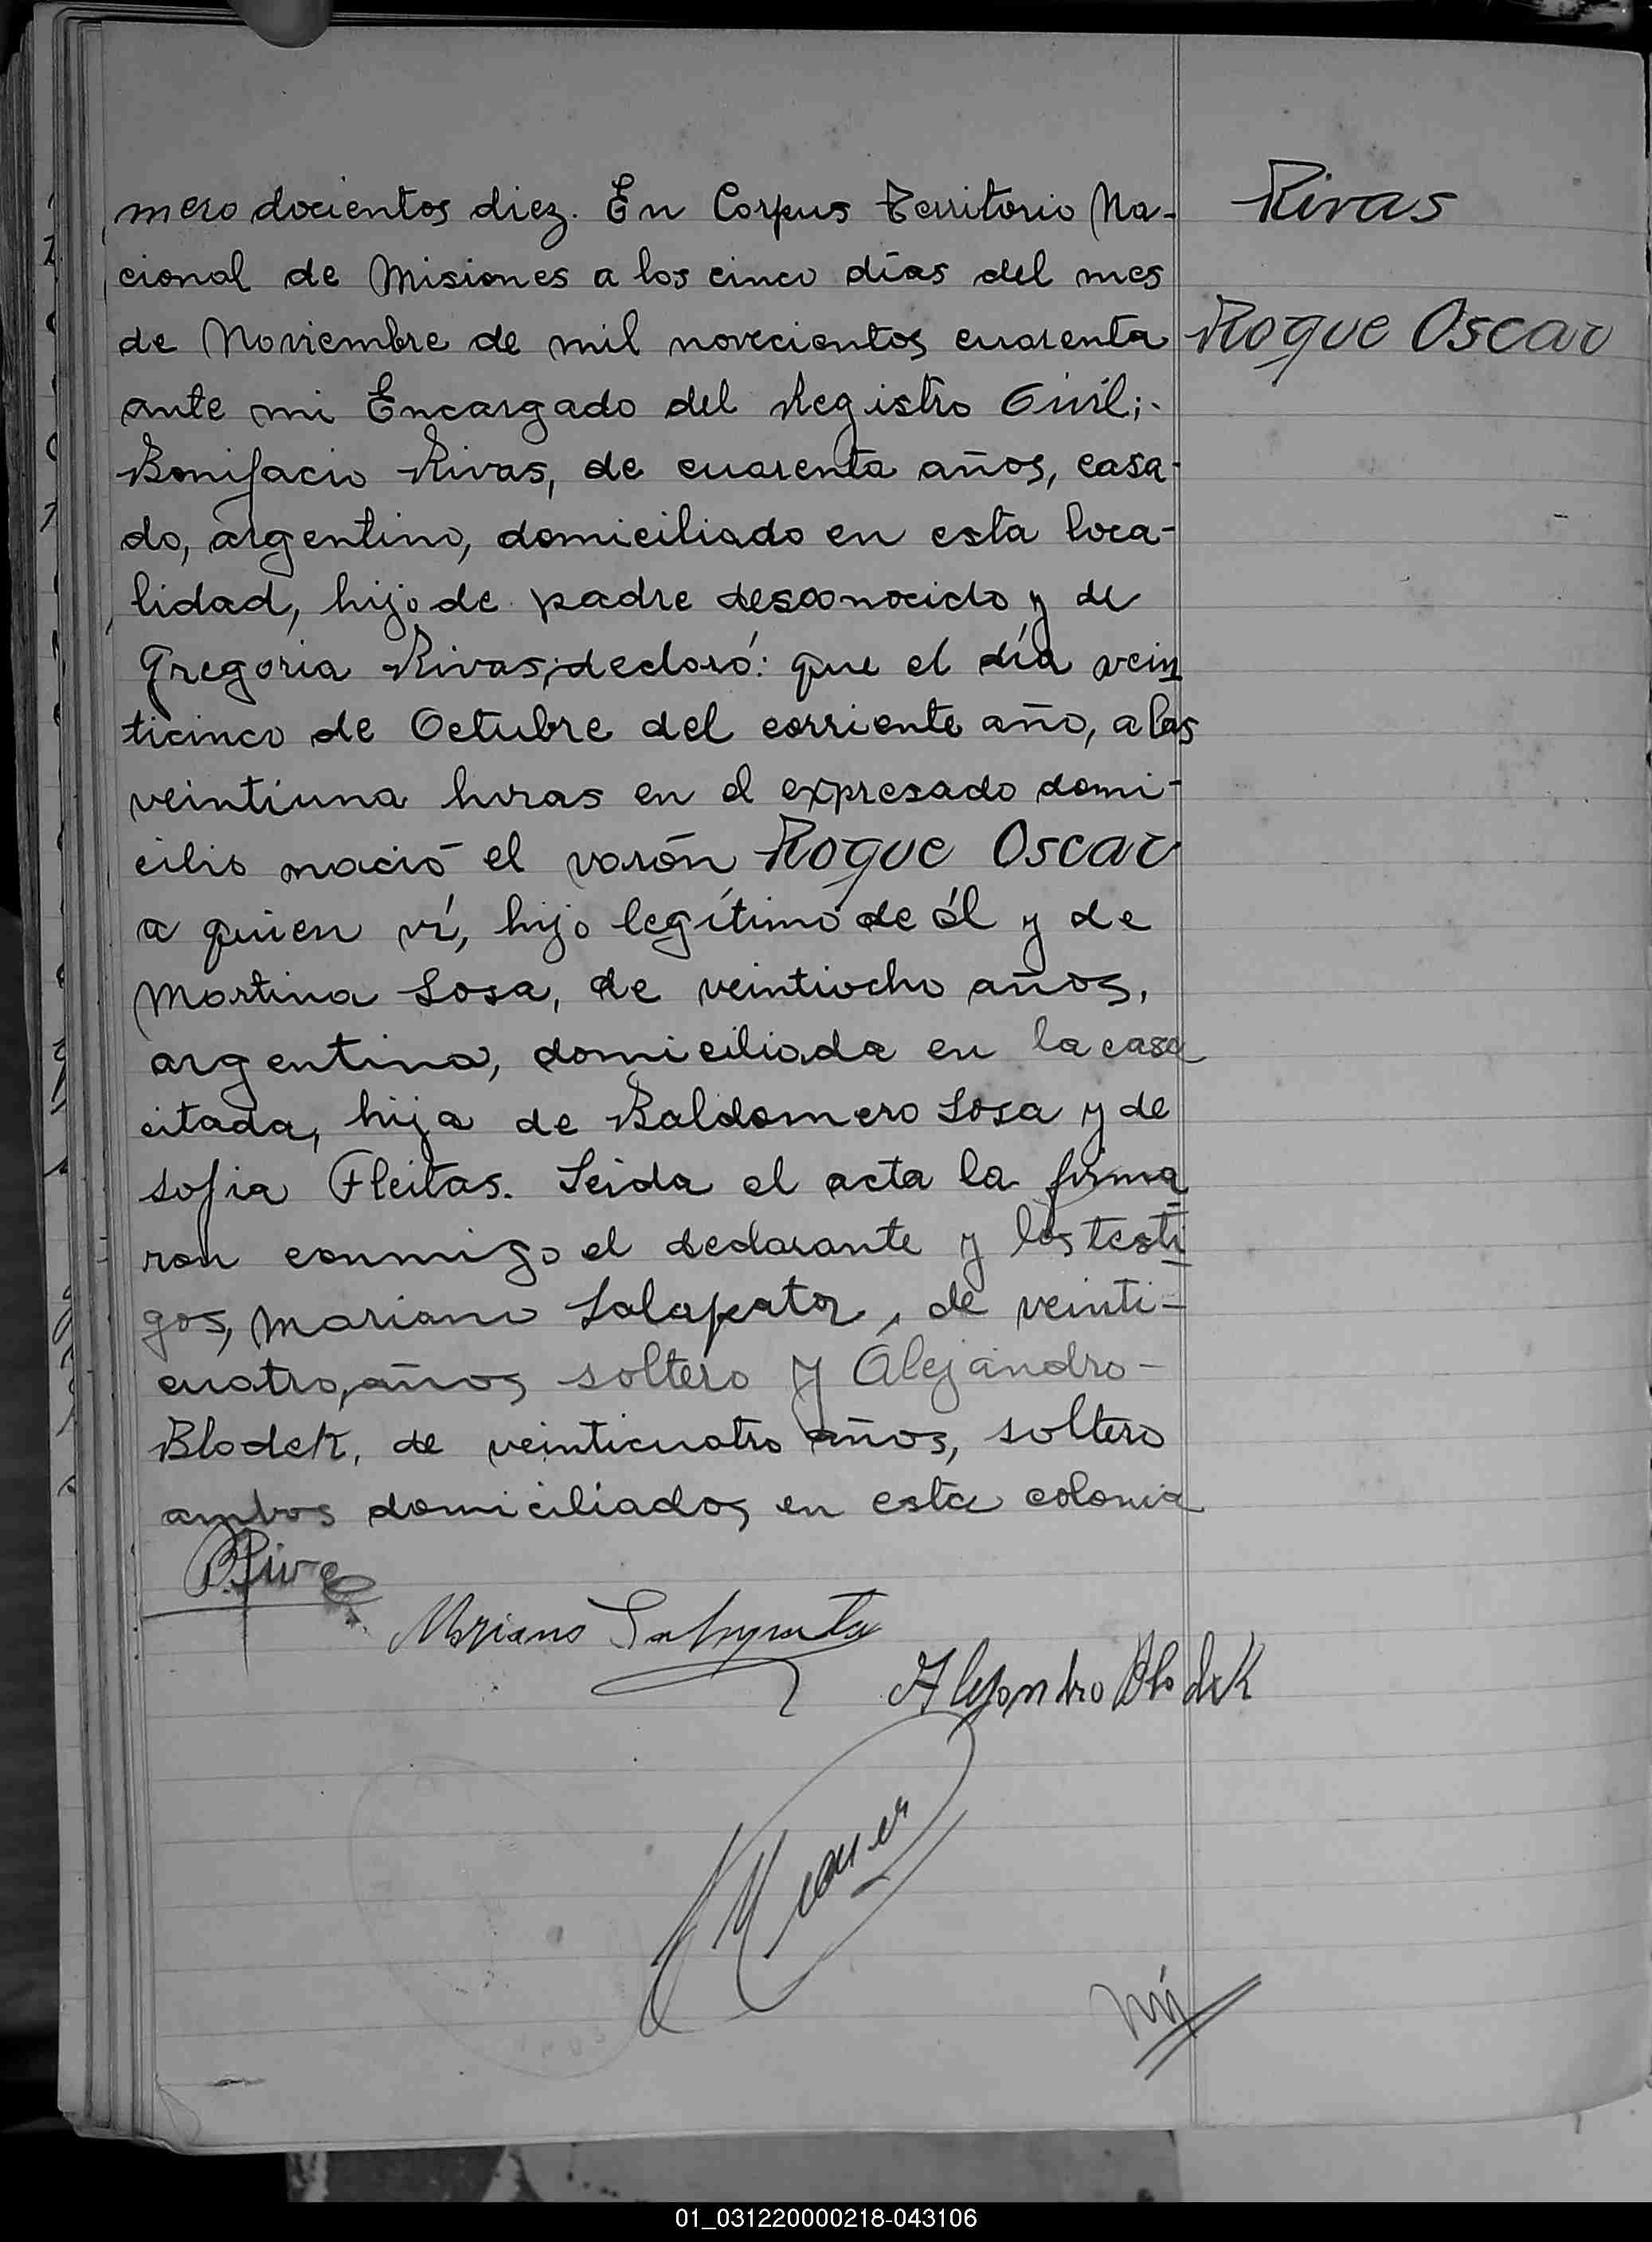 mero docientos diez. En Corpus Territorio Na-
cional de Misiones a los cinco días del mes
de Noviembre de mil novecientos cuarenta
ante mi Encargado del Registro Civil;-
Bonifacio Rivas, de cuarenta años, casa-
do, argentino, domiciliado en esta loca-
lidad, hijo de padre desconocido y de
Gregoria Rivas; declaró: que el día vein
ticinco de Octubre del corriente año, a las
veintiuna horas en el expresado domi-
cilio nació el varón Roque Oscar
a quien ví, hijo legítimo de él y de
Martina Sosa, de veintiocho años,
argentina, domiciliada en la casa
citada, hija de Baldomero Sosa y de
Sofia Fleitas. Leida el acta la firma
ron conmigo el declarante y los testi
gos, Mariano, de veinti-
cuatro, años soltero y Alejandro-
Blodek, de veinticuatro años, soltero
ambos domiciliados en esta colonia
Rivas
Roque Oscar
Mariano
Alejandro Blodek
01_031220000218-043106